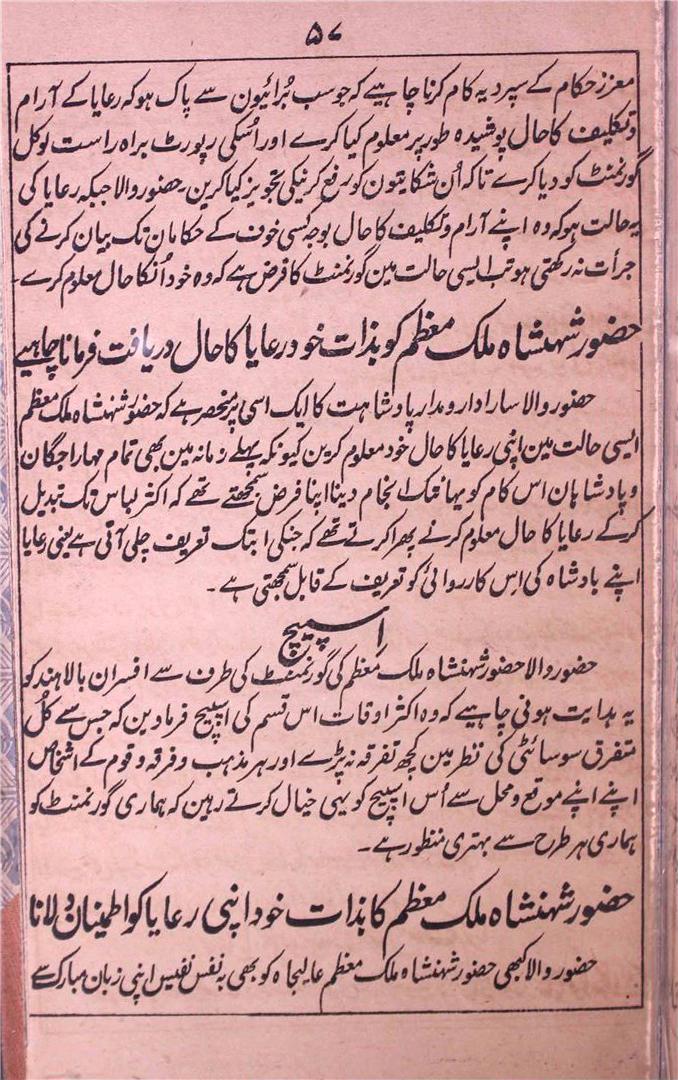 ۵۷
معزز حکام کے سپرد یہ کام کرنا چاہیے کہ جو سب بُرائیون سے پاک ہو کہ رعایا کے آرام
وتکلیف کا حال پوشیدہ طور پر معلوم کیا کرے اور اُسکی رپورٹ براہ راست لوکل
گورنمنٹ کو دیا کرے تاکہ اُن شکایتون کو رفع کرنیکی تجویز کیا کرین۔ حضور والا جبکہ رعایا کی
یہ حالت ہو کہ وہ اپنے آرام وتکلیف کا حال بوجہ کسی خوف کے حکامان تک بیان کرنے کی
جرأت نہ رکھتی ہو تب ایسی حالت مین گورنمنٹ کا فرض ہے کہ وہ خود اُنکا حال معلوم کرے۔
حضور شہنشاہ ملک معظم کو بذات خود رعایا کا حال دریافت فرمانا چاہیے
حضور والا سارا دارومدار پادشاہت کا ایک اسی پر منحصر ہے کہ حضور شہنشاہ ملک معظم
ایسی حالت مین اپنی رعایا کا حال خود معلوم کرین کیونکہ پہلے زمانہ مین بھی تمام مہاراجگان
و پادشاہان اس کام کو یہانتک انجام دینا اپنا فرض سمجھتے تھے کہ اکثر لباس تک تبدیل
کرکے رعایا کا حال معلوم کرنے پھرا کرتے تھے کہ جنکی ابتک تعریف چلی آتی ہے یعنی رعایا
اپنے بادشاہ کی اِس کارروائی کو تعریف کے قابل سمجھتی ہے۔
اسپیچ
حضور والا حضور شہنشاہ ملک معظم کی گورنمنٹ کی طرف سے افسران بالا ہند کو
یہ ہدایت ہونی چاہیے کہ وہ اکثر اوقات اس قسم کی اسپیچ فرمادین کہ جس سے کُل
متفرق سوسائٹی کی نظر مین کچھ تفرقہ نہ پڑے اور ہر مذہب و فرقہ و قوم کے اشخاص
اپنے اپنے موقع و محل سے اُس اسپیچ کو یہی خیال کرتے رہین کہ ہماری گورنمنٹ کو
ہماری ہر طرح سے بہتری منظور ہے۔
حضور شہنشاہ ملک معظم کا بذات خود اپنی رعایا کو اطمینان دلانا
حضور والا کبھی حضور شہنشاہ ملک معظم عالیجاہ کو بھی بہ نفس نفیس اپنی زبان مبارک سے